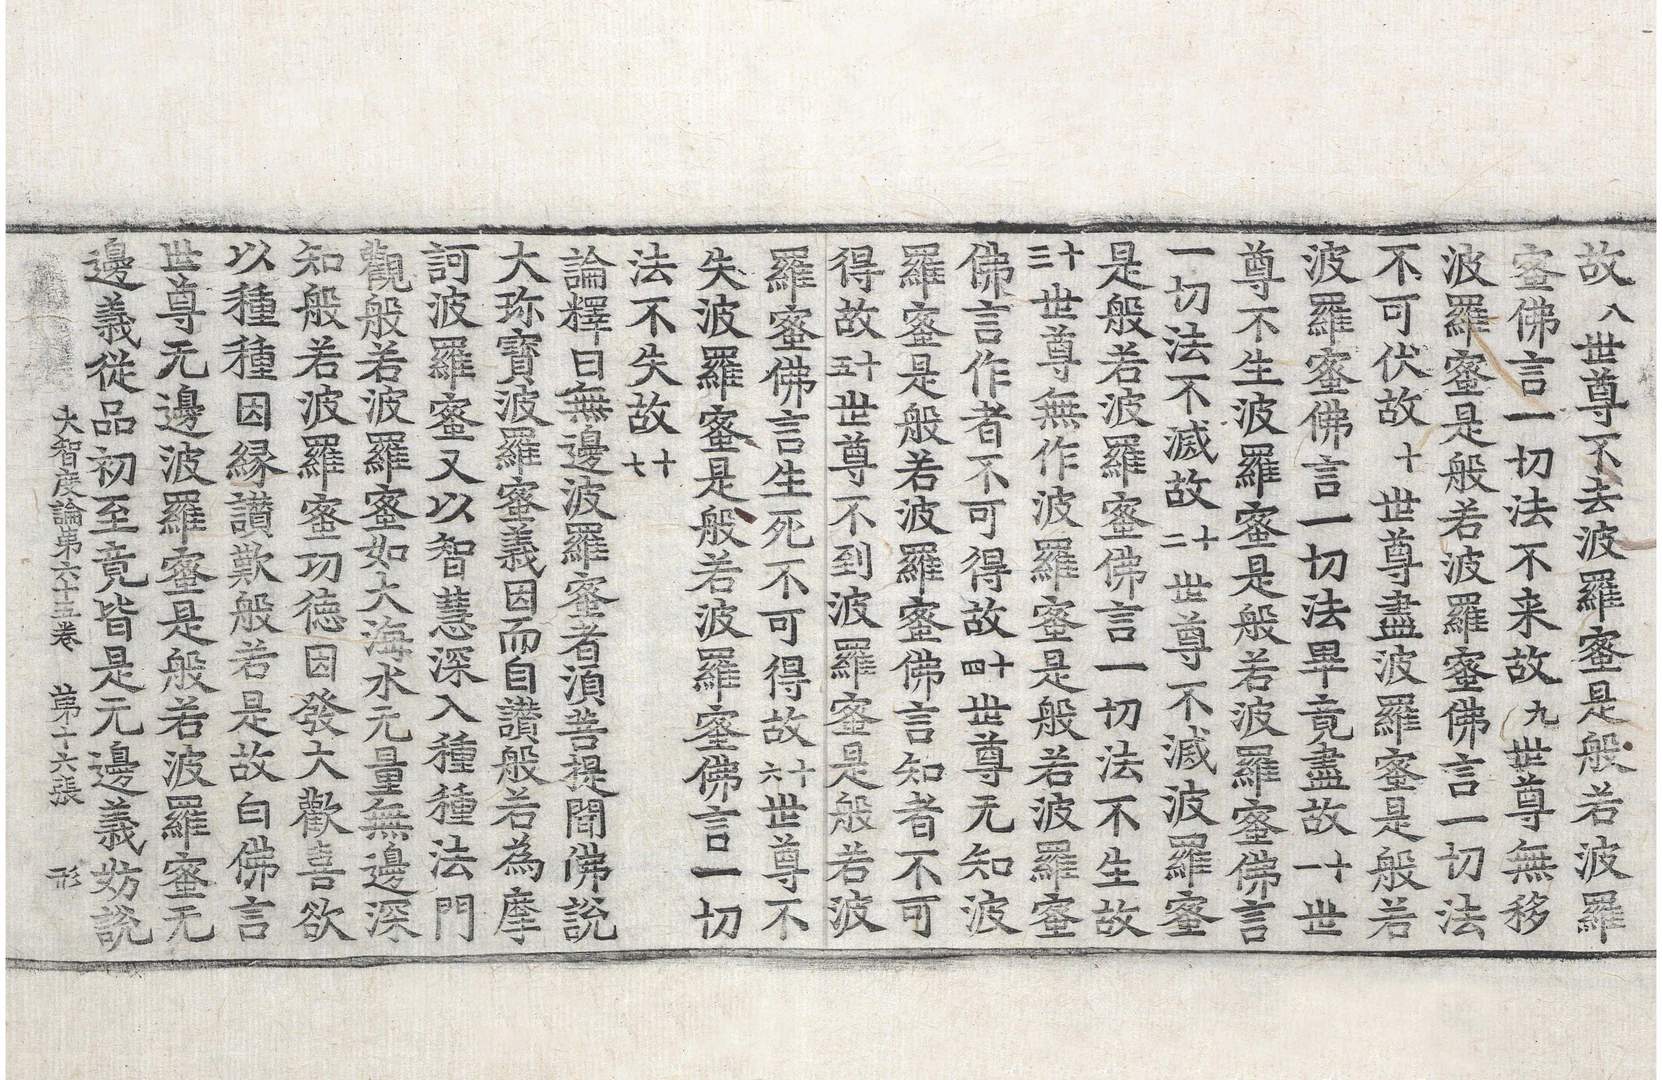 故八世尊不去波羅蜜是般若波羅
蜜佛言一切法不来故九世尊無移
波羅蜜是般若波羅蜜佛言一切法
不可伏故十世尊盡波羅蜜是般若
波羅蜜佛言一切法畢竟盡故十一世
尊不生波羅蜜是般若波羅蜜佛言
一切法不滅故十二世尊不滅波羅蜜
是般若波羅蜜佛言一切法不生故
十三世尊無作波羅蜜是般若波羅蜜
佛言作者不可得故十四世尊无知波
羅蜜是般若波羅蜜佛言知者不可
得故十五世尊不到波羅蜜是般若波
羅蜜佛言生死不可得故十六世尊不
失波羅蜜是般若波羅蜜佛言一切
法不失故十七
論釋曰無邊波羅蜜者湏菩提聞佛說
大珎寶波羅蜜義因而自讃般若為摩
訶波羅蜜又以智慧深入種種法門
觀般若波羅蜜如大海水无量無邊深
知般若波羅蜜功德因發大歡喜欲
以種種因縁讃歎般若是故白佛言
世尊无邊波羅蜜是般若波羅蜜无
邊義從品初至竟皆是无邊義妨說
大智度論第六十五卷 第十六張 形